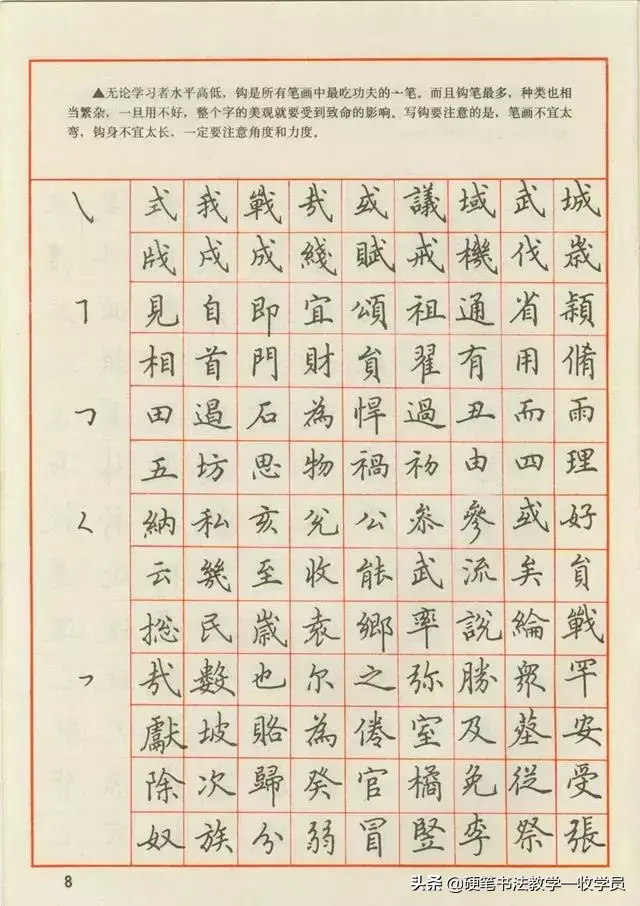 ▲无论学习者水平高低，钩是所有笔画中最吃功夫的一笔。而且钩笔最多，种类也相
当繁杂，一旦用不好，整个字的美观就要受到致命的影响。写钩要注意的是，笔画不宜太
弯，钩身不宜太长，一定要注意角度和力度。
㇂ 式 我 戰 哉 或 議 域 武 城
戕 戌 成 綫 賦 戒 機 伐 歲
㇕ 見 自 即 宜 頌 祖 通 省 穎
相 首 門 財 負 翟 有 用 脩
㇆ 田 遏 石 為 悍 過 丑 而 雨
五 坊 思 物 禍 初 由 四 理
㇛ 納 私 亥 兊 公 叅 參 或 好
云 幾 至 收 能 武 流 矣 負
捴 民 歲 袁 鄉 率 說 綸 戰
㇇ 哉 數 也 尔 之 弥 勝 衆 罕
獻 坡 賂 為 倦 室 及 墓 安
除 次 歸 癸 官 橘 免 從 受
奴 族 分 弱 冒 竪 李 祭 張
8
头条 @硬笔书法教学一收学员